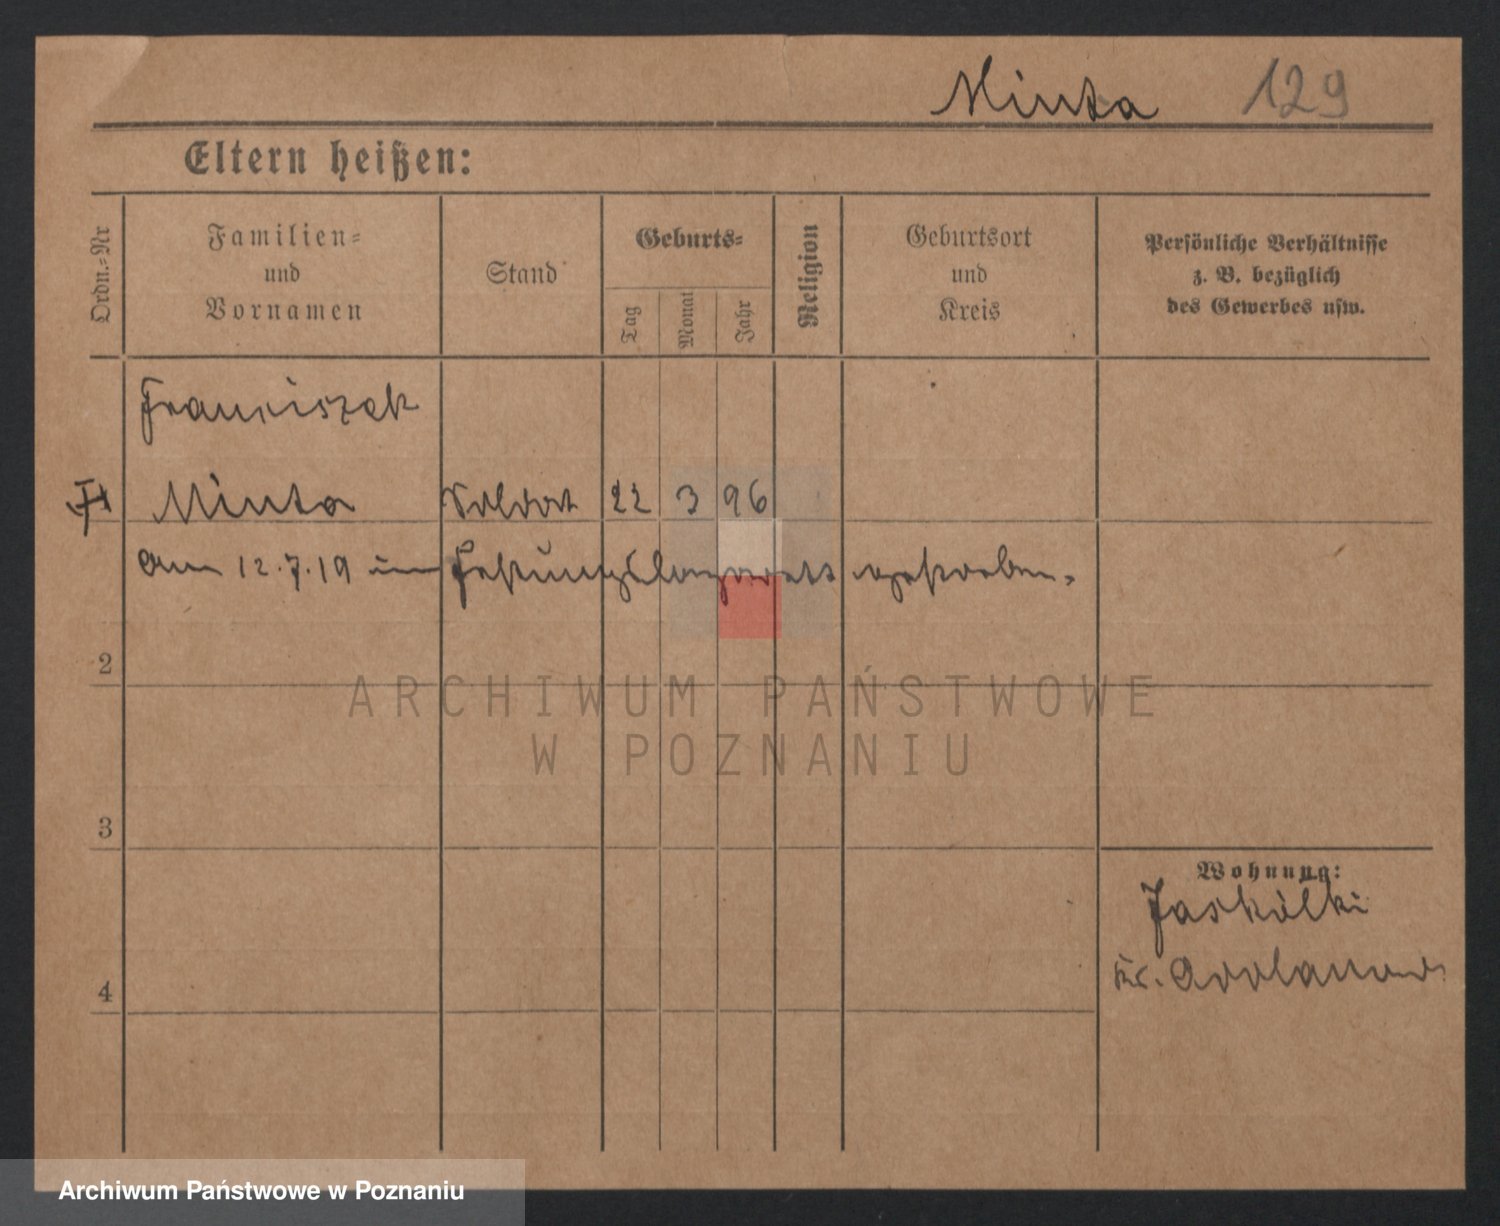 Minta 129
Eltern heißen:
Ordn.-Nr
Familien-
und
Vornamen
Stand
Geburts-
Tag
Monat
Jahr
Religion
Geburtsort
und
Kreis
Persönliche Verhältnisse
z. B. bezüglich
des Gewerbes usw.
Franciszek
Minta Soldat 22 3 96
am 12.7.19 im Festungslazarett gestorben.
2
ARCHIWUM PAŃSTWOWE
W POZNANIU
3
Wohnung:
Jaskólki
Kr. Adelnau
4
Archiwum Państwowe w Poznaniu